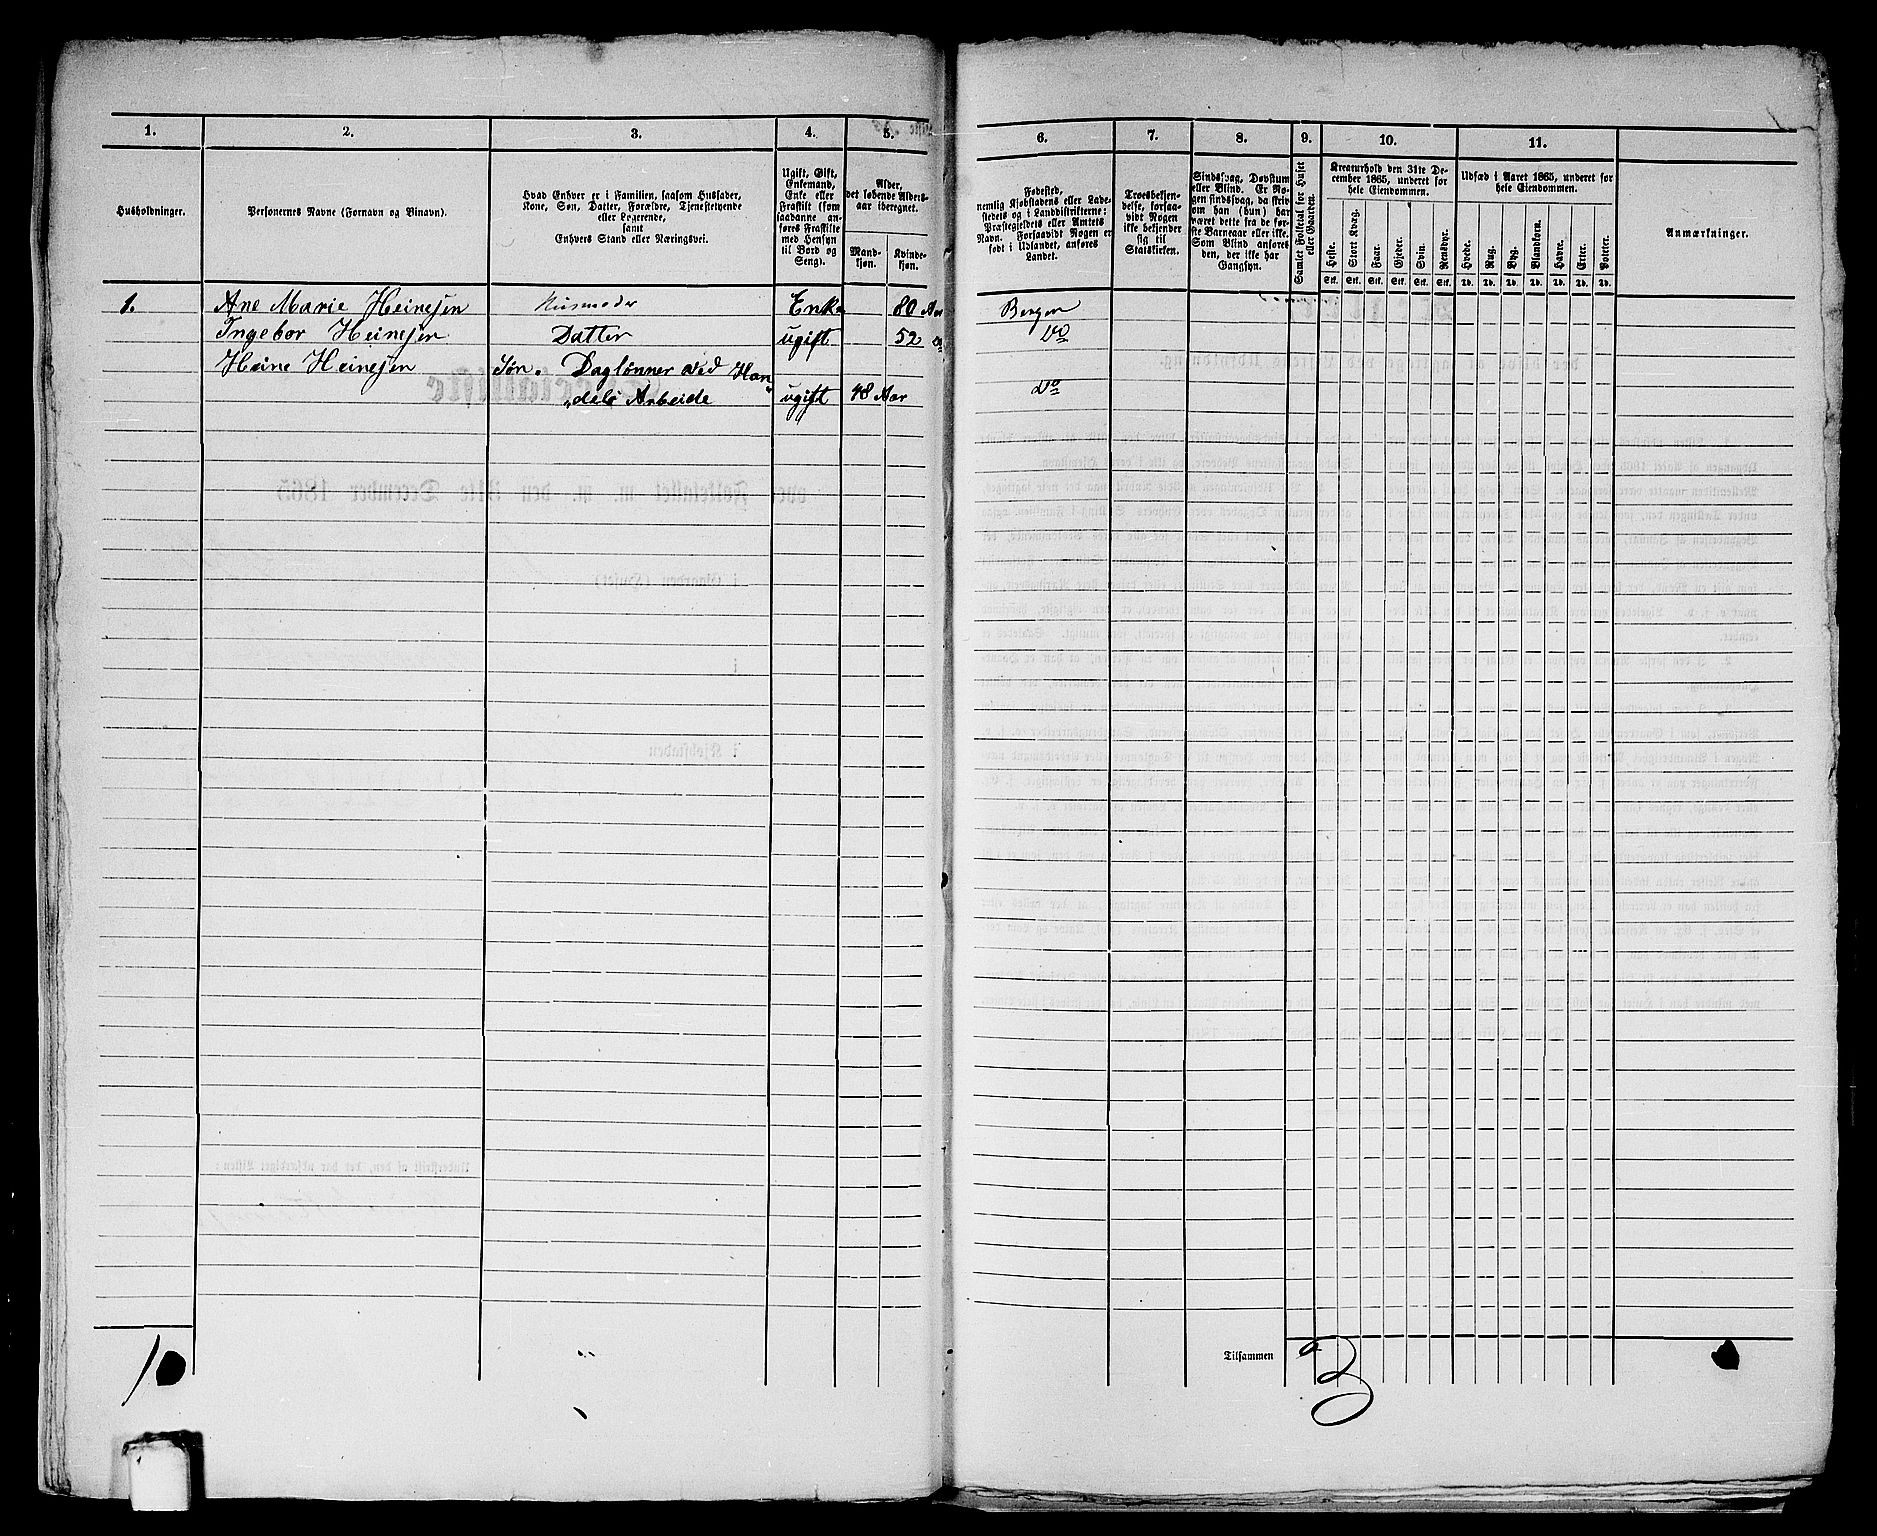 1. 2. 3. 4. 5. 6. 7. 8. 9. 10. 11.
Husholdninger.
Personernes Navne (Fornavn og Binavn).
Hvad Enhver er i Familien, saasom Husfader,
Kone, Søn, Datter, Forældre, Tjenestetyende
eller Logerende,
samt
Enhvers Stand eller Næringsvei.
Ugift, Gift,
Enkemand,
Enke eller
Fraskilt (som
saadanne an-
føres Fraskilte
med Hensyn
til Bord og
Seng).
Alder,
det løbende Alders-
aar iberegnet.
Mand-
kjøn.
Kvinde-
kjøn.
Fødested,
nemlig Kjøbstadens eller Lade-
stedets og i Landdistrikterne:
Præstegjeldets eller Amtets
Navn. Forsaavidt Nogen er
født i Udlandet, anføres
Landet.
Troesbekjen-
delse, forsaa-
vidt Nogen
ikke bekjender
sig til
Statskirken.
Sindssvag, Døvstum
eller Blind. Er No-
gen sindssvag, da skriv
om han (hun) har
været dette fra de før-
ste Barneaar eller ikke.
Som Blind anføres
den, der ikke har
Gangsyn.
Samlet Folketal for Huset
eller Gaarden.
Kreaturhold den 31te De-
cember 1865, underet for
hele Eiendommen.
Heste. Stort Kvæg. Faar. Gjeder. Svin. Rensdyr.
Stk. Stk. Stk. Stk. Stk. Stk.
Udsæd i Aaret 1865, underet for
hele Eiendommen.
Hvede. Rug. Byg. Blandkorn. Havre. Erter. Poteter.
Td. Td. Td. Td. Td. Td. Td.
Anmærkninger.
1. Ane Marie Heinesen Husmoder Enke 80 Aar Bergen
Ingebor Heinesen Datter ugift 52 Do
Heine Heinesen Søn. Daglønner ved Han
dels Arbeide ugift 48 Aar Do
1
Tilsammen 3